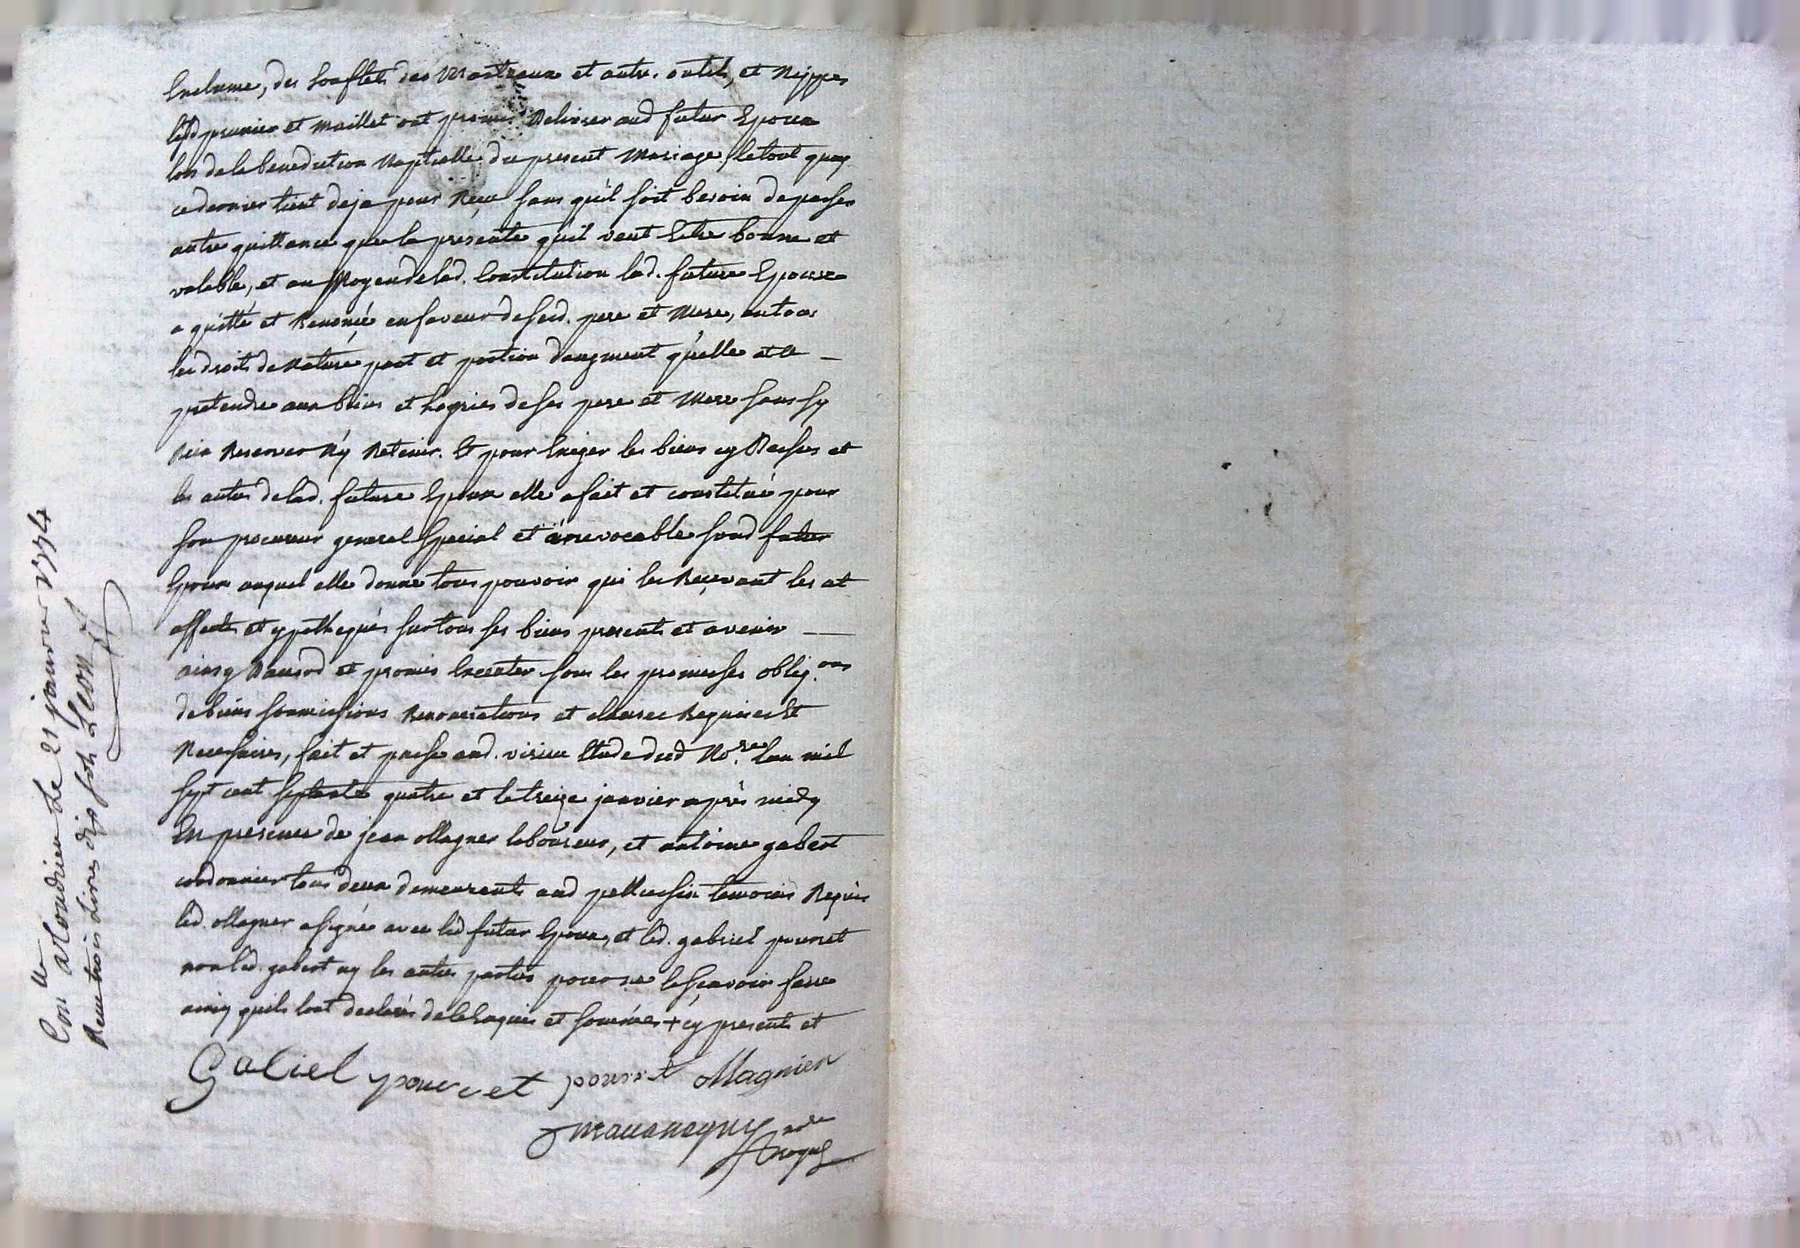 Enclume, des soufflets des Marteaux et autre. outils, et Nippes
led prunier et maillet ont promis Delivrer aud futur Epoux
lors de la benediction Nuptialle du present Mariage, le tout quoy
ce dernier tient deja pour Reçu sans qu'il soit besoin de passer
autre quittance que la presente qu'il veut Estre bonne et
valable, et au Moyen de lad. Constitution lad. future Epouze
a quitté et Renoncé en faveur de sesd. pere et Mere, a tous
les droits de Nature part et portion d'augment qu'elle at a —
pretendre aux biens et hoyries de ses pere et Mere sans sy
Rien Reserver Ny Retenir. Et pour Exiger les biens cy Dessus et
les autres de lad. future Epouze elle a fait et constitué pour
son procureur general special et irrevocable sond futur
Epoux auquel elle donne tous pouvoir qui les Recevant les at
affectés et ypothequés sur tous ses biens presents et avenir —
ainsy Daccord et promis Executer sous les promesses oblig.ons
de biens soumissions Renonciations et clauses Requises Et
Necessaires, fait et passé aud. virieu Etude dud No.re lan mil
sept cent septante quatre et le treize janvier après midy
En presence de jean ollagner laboureur, et antoine gabert
cordonnier tous deux demeurants aud pellussin temoins Requis
led. ollagner a signé avec led futur Epoux, et led. gabriel pourret
non led. gabert ny les autres parties pour ne le sçavoir faire
ainsy qu'ils l'ont declaré de ce Enquis et sommés + cy presents et
Gabriel pourret pourret ollagnier
nore
Royal
Con.lle a Condrieu Le 21 janvier 1774
Reçu trois Livres dix sols Leon